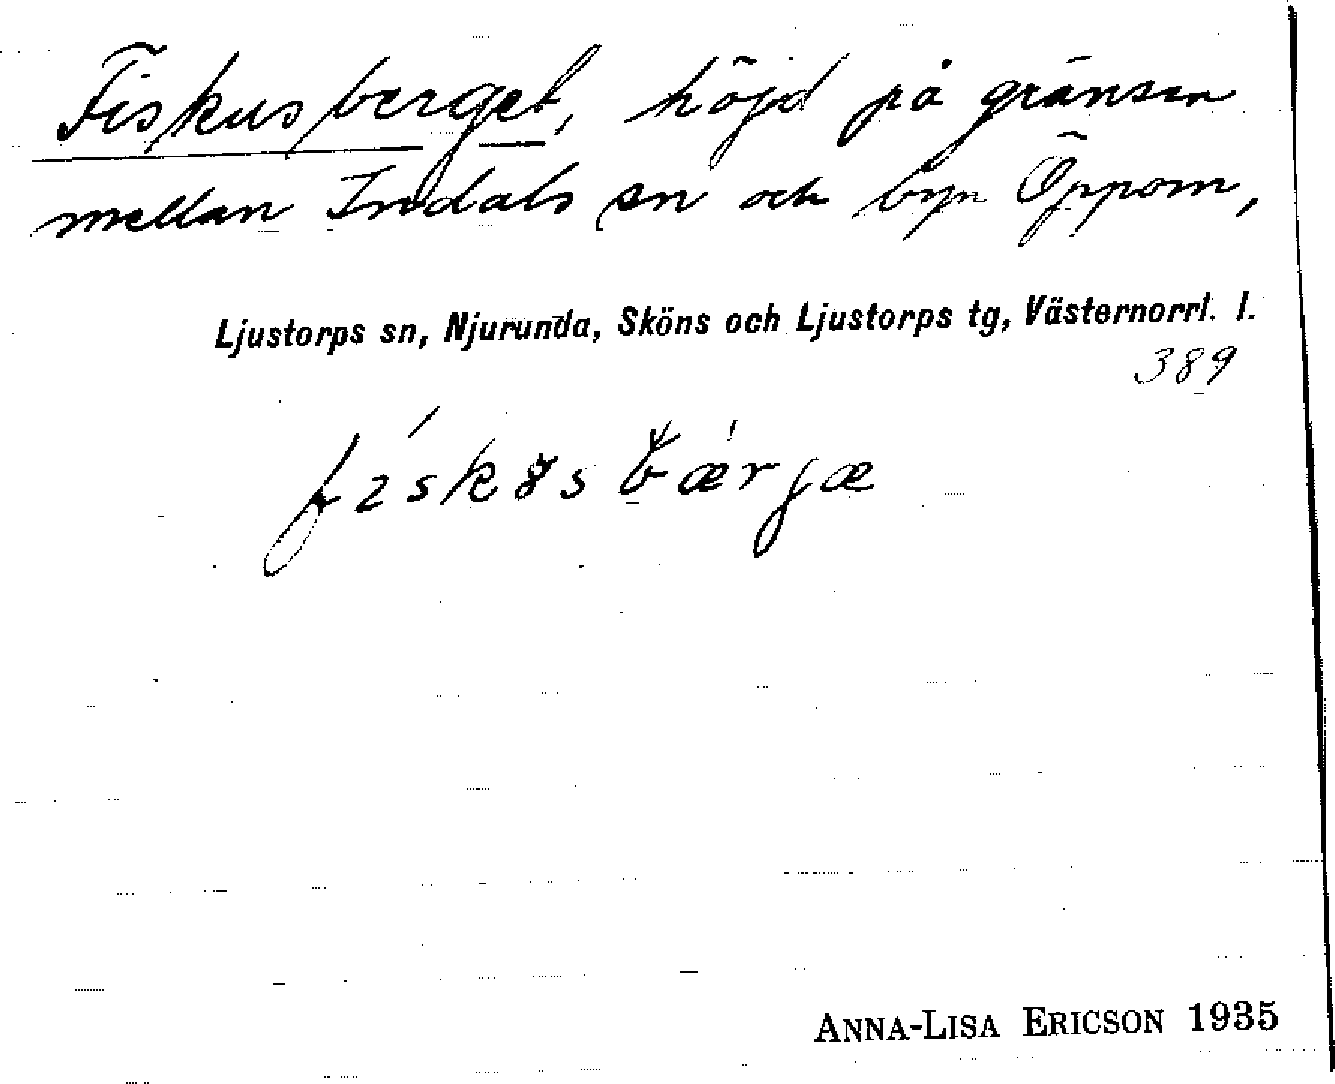 Fiskusberget, höjd på gränsen
mellan Indals sn och byn Öppom,
Ljustorps sn, Njurunda, Sköns och Ljustorps tg, Västernorrl. l.
389
ANNA-LISA ERICSON 1935